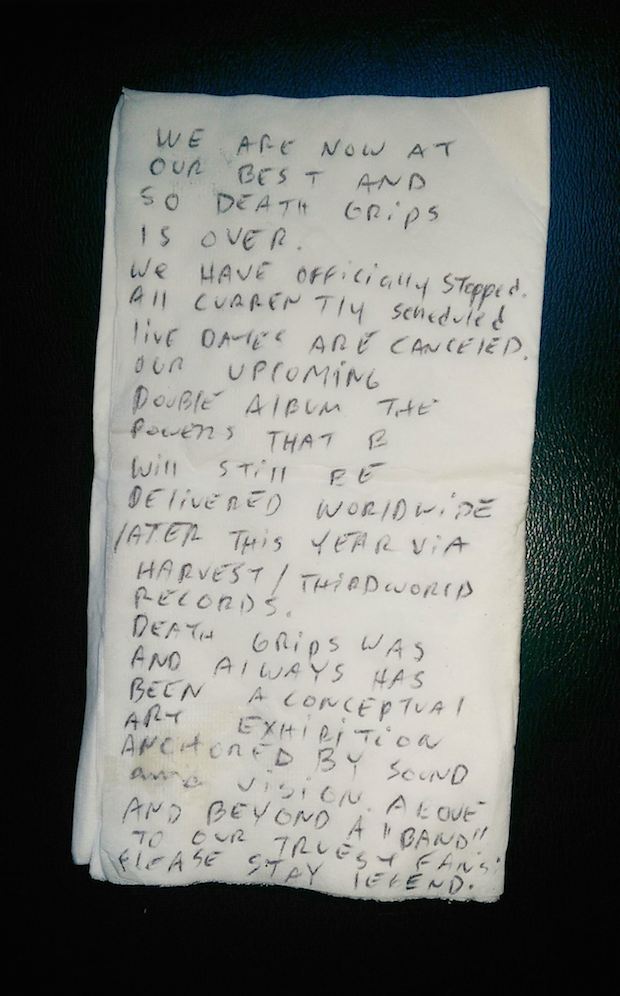 WE ARE NOW AT
OUR BEST AND
SO DEATH GRiPS
IS OVER.
We HAVE OFFiciAlly Stopped.
All CURRENTly scheduled
live DATES ARE CANCElED.
OUR UPCOMiNG
DOUBlE AlBUM THE
POWERS THAT B
Will STill BE
DEliVERED WORlDWiDE
lATER THiS YEAR ViA
HARVEST/THiRDWORlD
RECORDS.
DEATH GRiPS WAS
AND AlWAYS HAS
BEEN A CONCEPTUAl
ART EXHiBiTiON
ANCHORED BY SOUND
and ViSiON. ABOVE
AND BEYOND A "BAND"
TO OUR TRUEST FANS,
PlEASE STAY lEGEND.